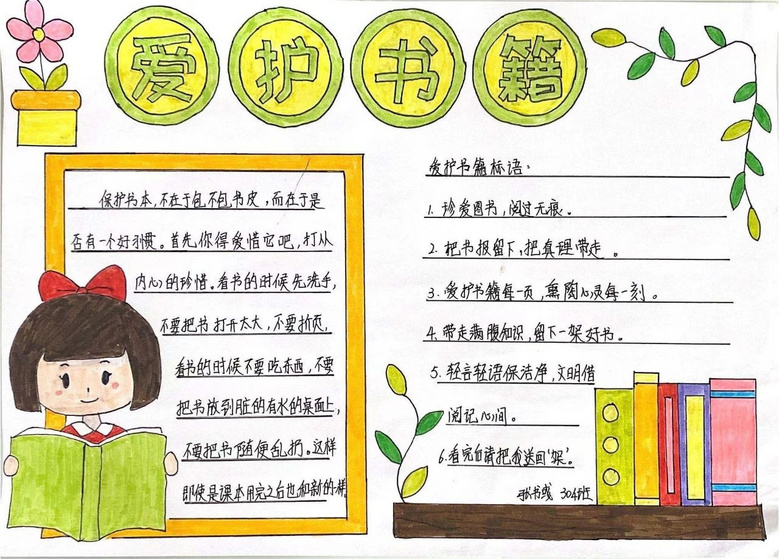 爱护书籍
保护书本，不在于包不包书皮，而在于是
否有一个好习惯。首先你得爱惜它吧，打从
内心的珍惜。看书的时候先洗手，
不要把书打开太大，不要折页，
看书的时候不要吃东西，不要
把书放到脏的有水的桌面上，
不要把书随便乱扔。这样
即使是课本用完之后也和新的一样
爱护书籍标语：
1. 珍爱图书，阅过无痕。
2. 把书报留下，把真理带走。
3. 爱护书籍每一页，熏陶心灵每一刻。
4. 带走满腹知识，留下一架好书。
5. 轻言轻语保洁净，文明借
阅记心间。
6. 看完自请把我送回‘架’。
304班